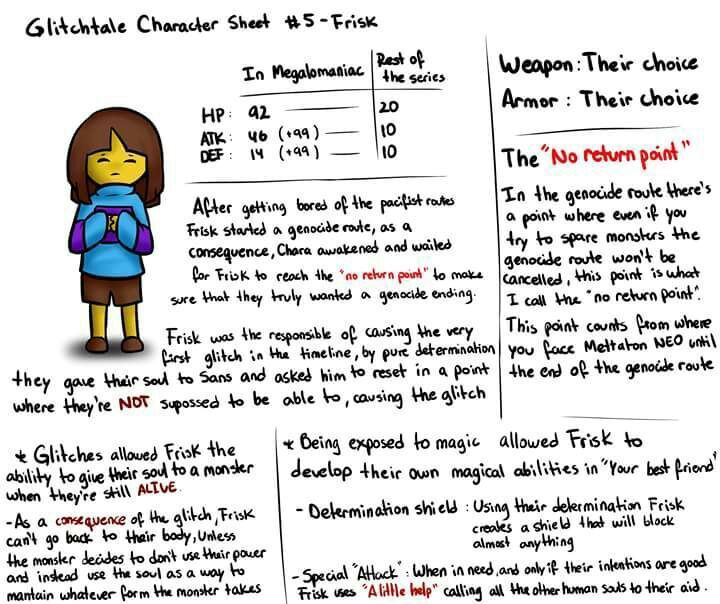 Glitchtale Character Sheet #5 - Frisk
In Megalomaniac
Rest of
the series
HP: 92 20
ATK: 46 (+99) 10
DEF: 14 (+99) 10
After getting bored of the pacifist routes
Frisk started a genocide route, as a
consequence, Chara awakened and waited
for Frisk to reach the "no return point" to make
sure that they truly wanted a genocide ending.
Frisk was the responsible of causing the very
first glitch in the timeline, by pure determination
they gave their soul to Sans and asked him to reset in a point
where they're NOT supossed to be able to, causing the glitch
Weapon: Their choice
Armor : Their choice
The "No return point"
In the genocide route there's
a point where even if you
try to spare monsters the
genocide route won't be
cancelled, this point is what
I call the "no return point".
This point counts from where
you face Mettaton NEO until
the end of the genocide route
* Glitches allowed Frisk the
ability to give their soul to a monster
when they're still ALIVE.
- As a consequence of the glitch, Frisk
can't go back to their body, Unless
the monster decides to don't use their power
and instead use the soul as a way to
mantain whatever form the monster takes
* Being exposed to magic allowed Frisk to
develop their own magical abilities in "Your best friend"
- Determination shield : Using their determination Frisk
creates a shield that will block
almost anything
- Special "Attack" : When in need, and only if their intentions are good
Frisk uses "A little help" calling all the other human souls to their aid.